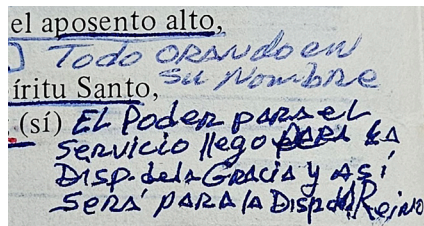 el aposento alto,
Todo orando en
su Nombre
íritu Santo,
(sí) El Poder para el
servicio llego para la
Disp. de la Gracia y así
será para la Disp. del Reino